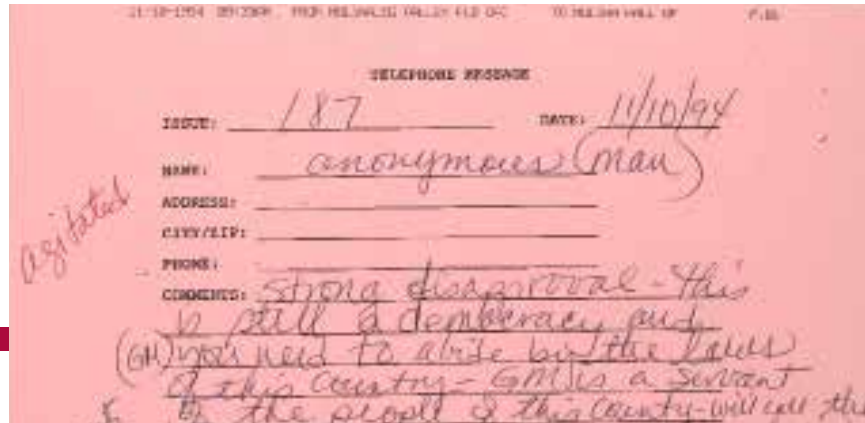 TELEPHONE MESSAGE
ISSUE: 187 DATE: 11/10/94
NAME: anonymous (man)
agitated
ADDRESS:
CITY/ZIP:
PHONE:
COMMENTS: strong disapproval - this
is still a democracy and
(GM) you need to abide by the laws
of this Country - GM is a servant
of the people of this County - will call